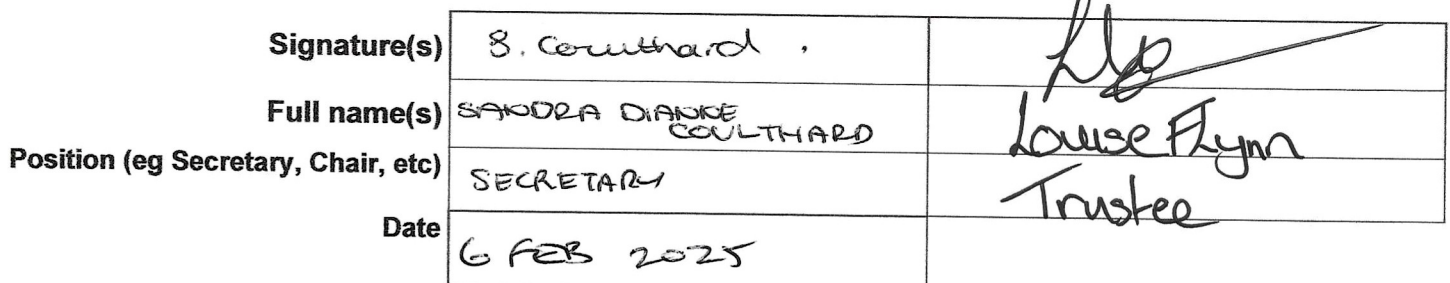 Signature(s) S. Coulthard .
Full name(s) SANDRA DIANNE COULTHARD Louise Flynn
Position (eg Secretary, Chair, etc) SECRETARY Trustee
Date 6 FEB 2025